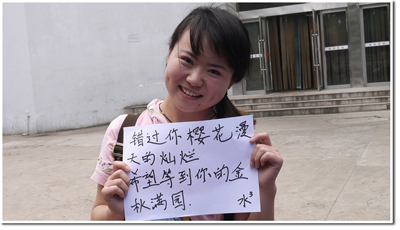 错过你樱花漫
天的灿烂
希望等到你的金
秋满园.